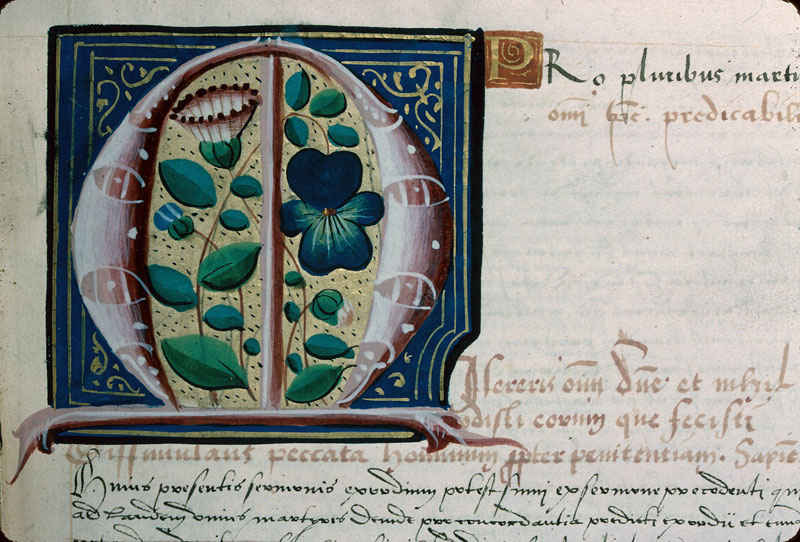 PRo pluribus marti
omi tpc. predicabil
Misereris oium Dne et nihil
odisti eorum que fecisti
Dissimulans peccata hominum ppter penitentiam. Sapien
Huius presentis sermonis exordium potest sumi ex sermone precedenti qu
ad laudem omnis martyris deinde pro concordantia predicti exordii et